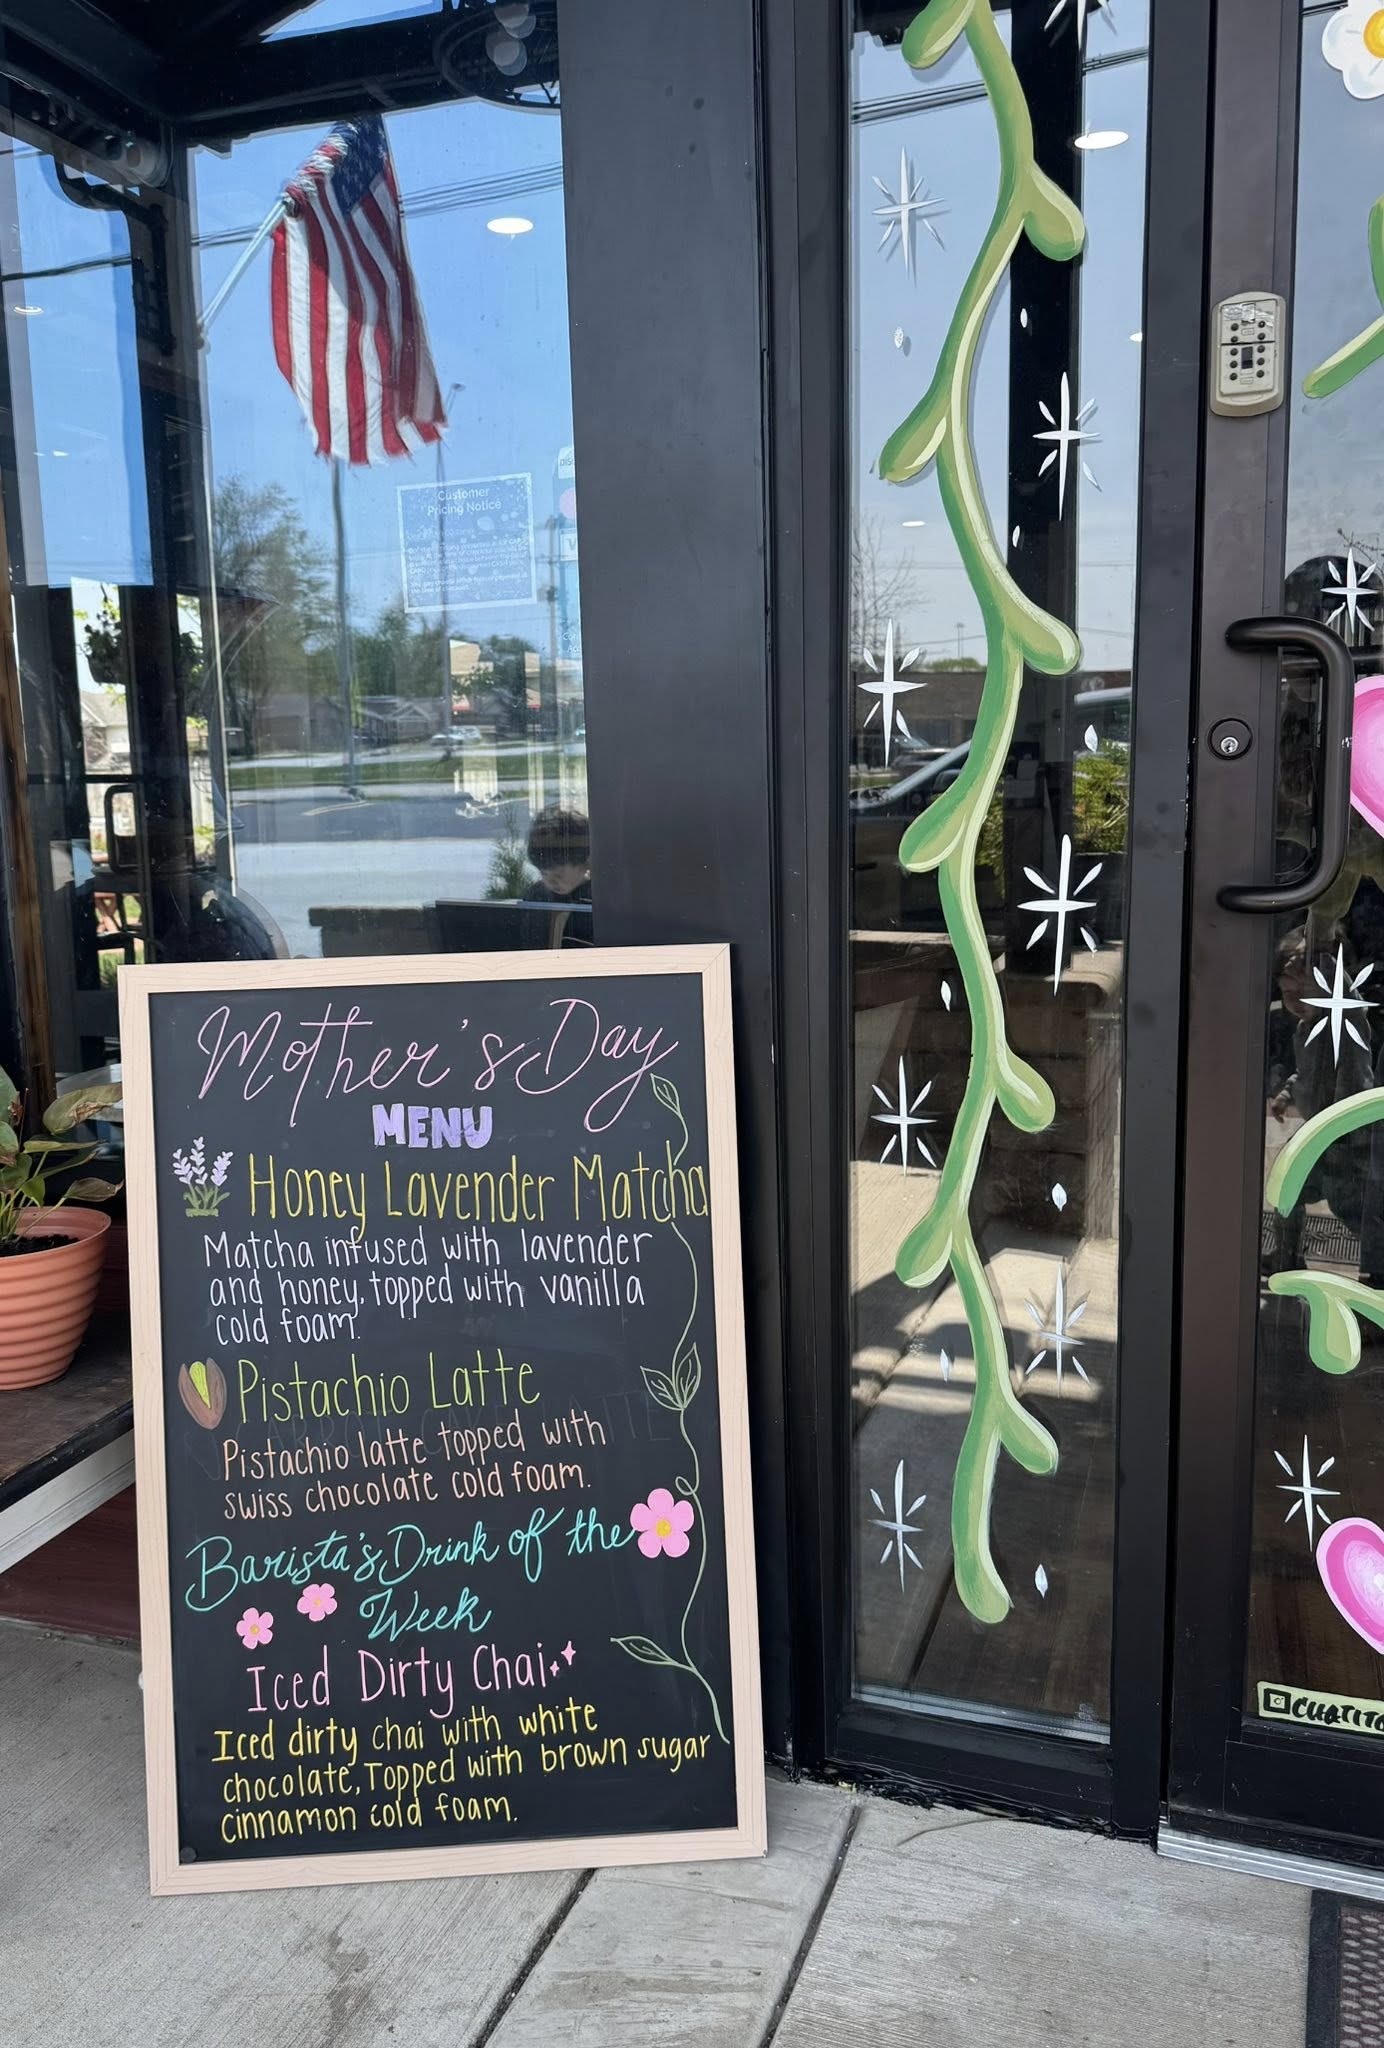 Customer
Pricing Notice
Mother's Day
MENU
Honey Lavender Matcha
Matcha infused with lavender
and honey, topped with vanilla
cold foam.
Pistachio Latte
Pistachio latte topped with
swiss chocolate cold foam.
Barista's Drink of the
Week
Iced Dirty Chai
Iced dirty chai with white
chocolate, Topped with brown sugar
cinnamon cold foam.